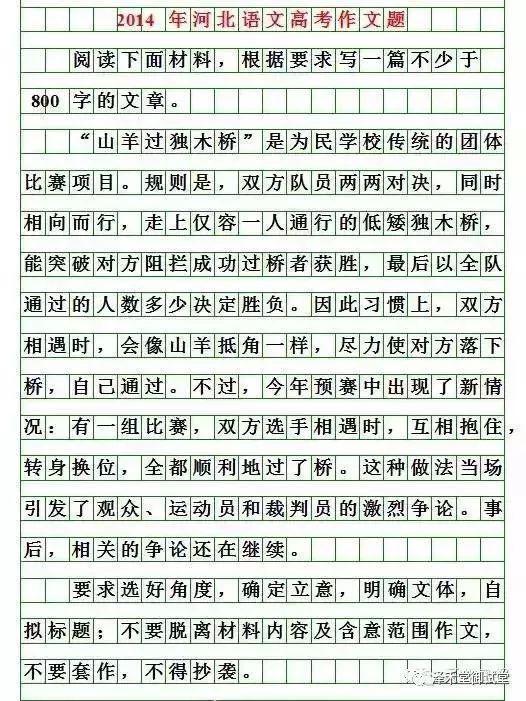 2014 年河北语文高考作文题
阅读下面材料，根据要求写一篇不少于
800 字的文章。
“山羊过独木桥”是为民学校传统的团体
比赛项目。规则是，双方队员两两对决，同时
相向而行，走上仅容一人通行的低矮独木桥，
能突破对方阻拦成功过桥者获胜，最后以全队
通过的人数多少决定胜负。因此习惯上，双方
相遇时，会像山羊抵角一样，尽力使对方落下
桥，自己通过。不过，今年预赛中出现了新情
况：有一组比赛，双方选手相遇时，互相抱住，
转身换位，全都顺利地过了桥。这种做法当场
引发了观众、运动员和裁判员的激烈争论。事
后，相关的争论还在继续。
要求选好角度，确定立意，明确文体，自
拟标题；不要脱离材料内容及含意范围作文，
不要套作，不得抄袭。
泽禾堂御试堂